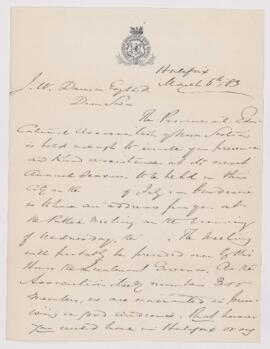 Halifax
March 6th, 83
J. W. Dawson Esq
Dear Sir
The Provincial Edu-
cational Association of Nova Scotia
is bold enough to invite your presence
and kind assistance at its next
Annual Session to be held in this
City on the of July
to have an address from you, at
the Public Meeting on the evening
of Wednesday, the . The Meeting
will probably be presided over by His
Honor the Lieutenant Governor. As the
Association already numbers 300
members, we are warranted in
a good audience. That
you could have in Halifax